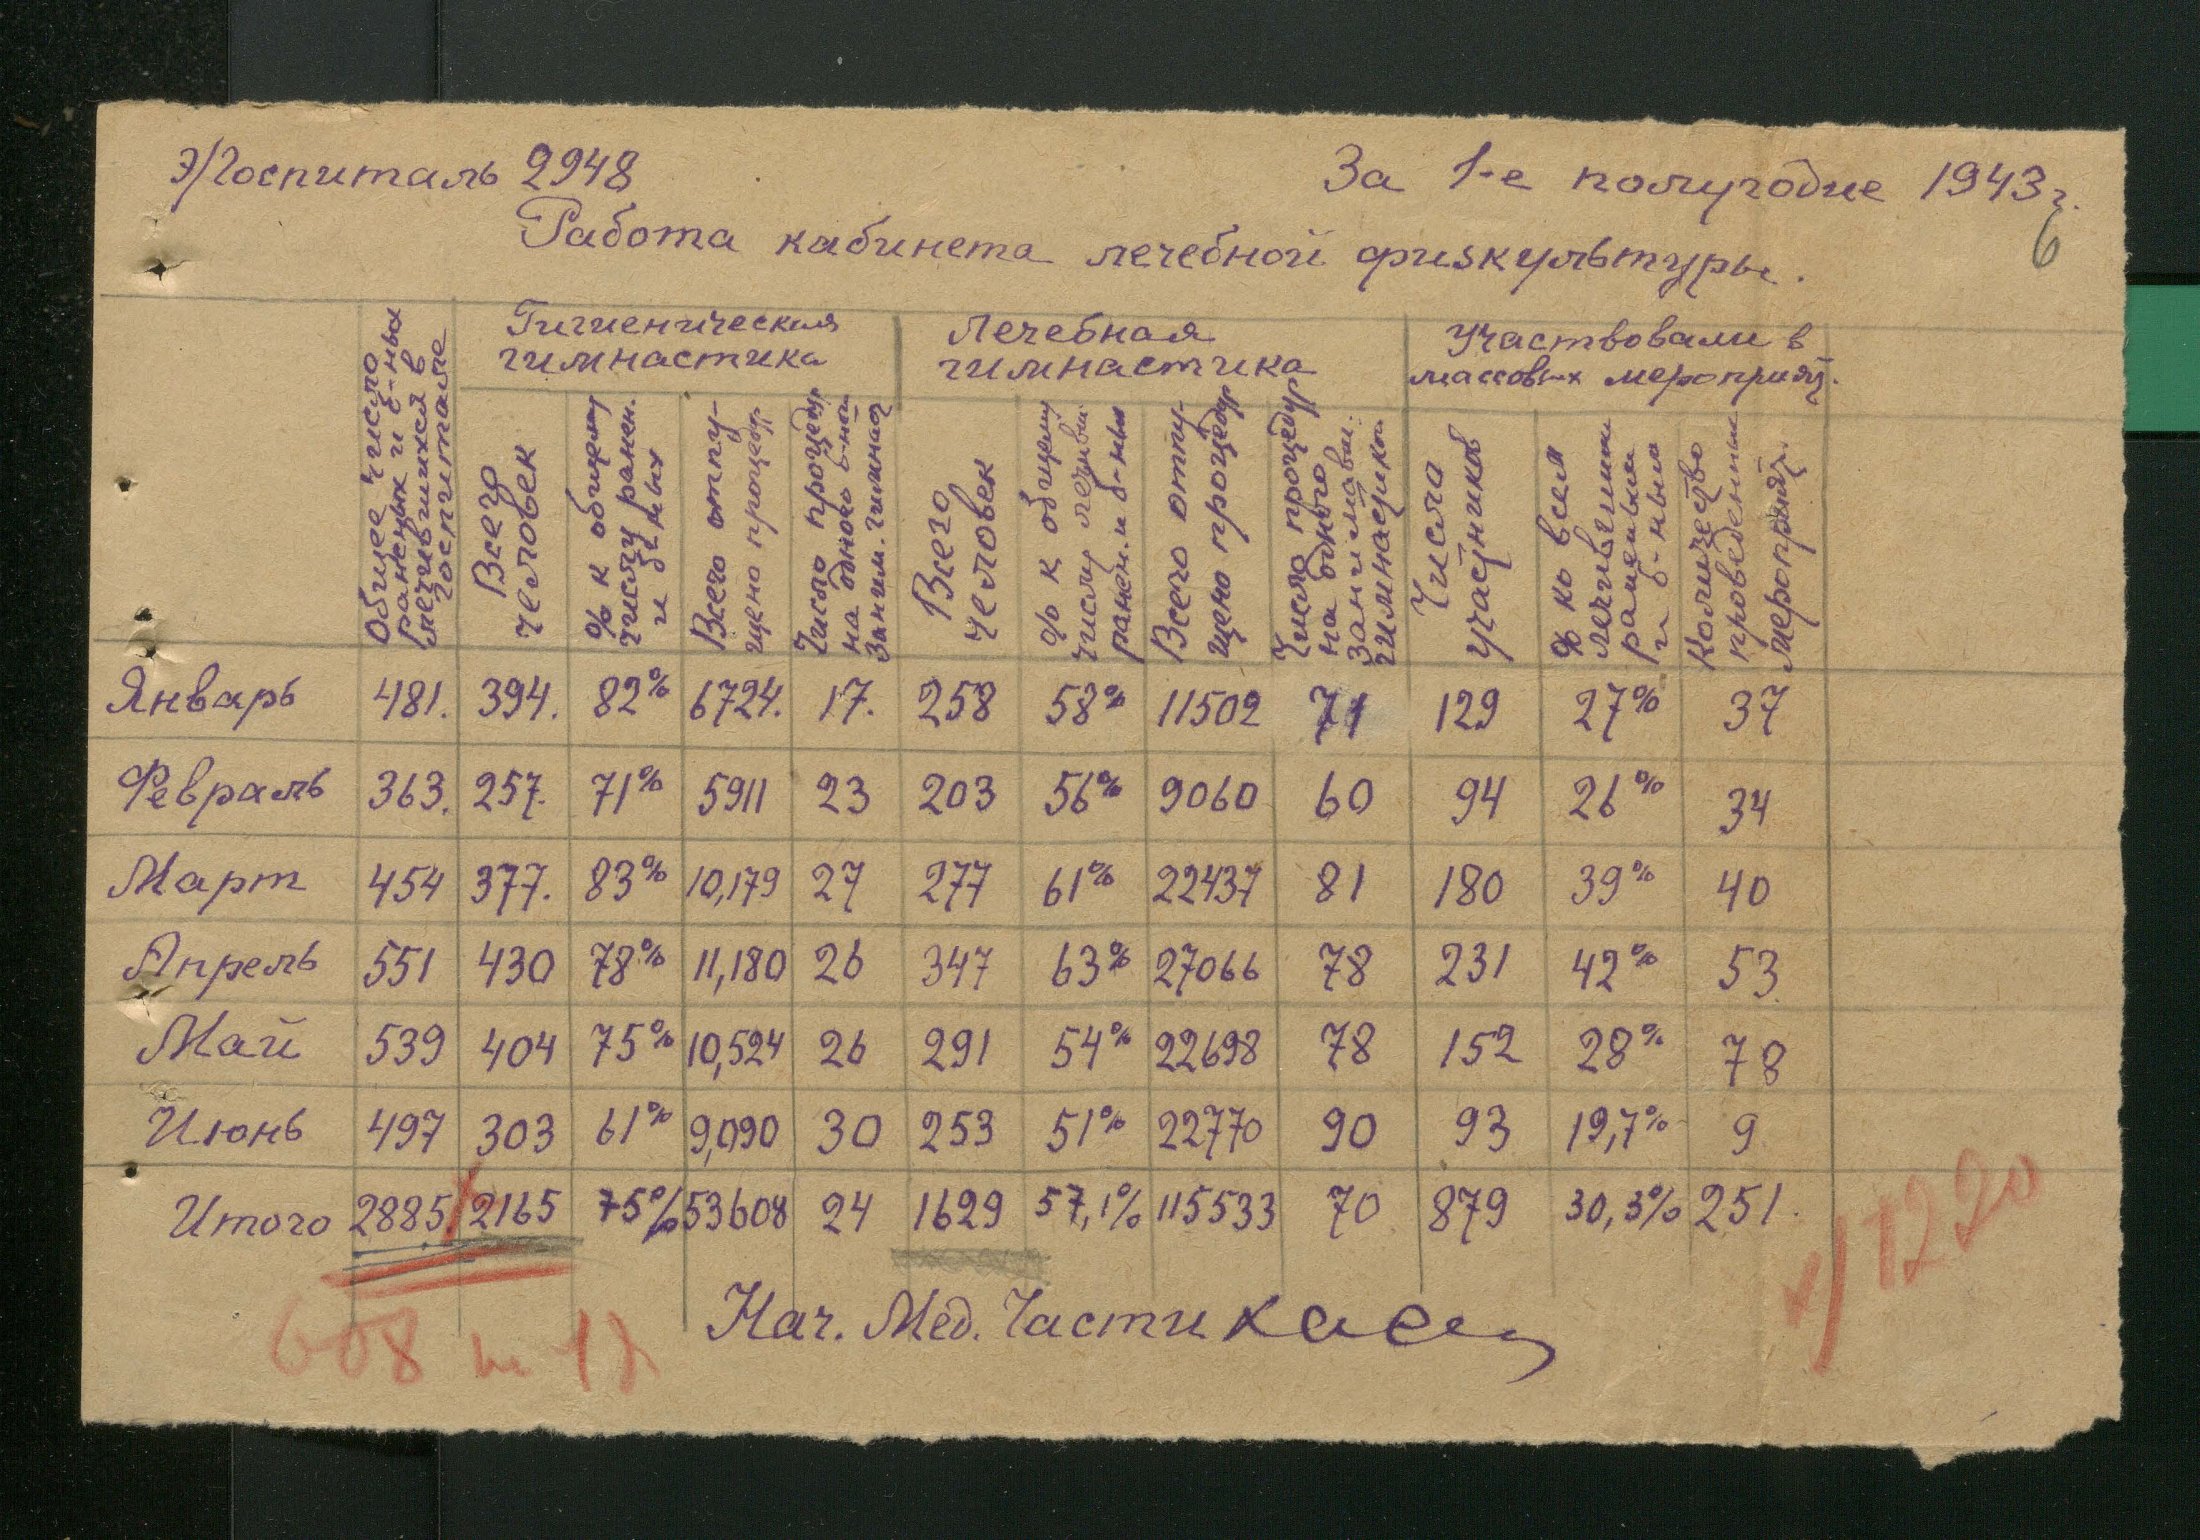 Э/Госпиталь 2948 За 1-е полугодие 1943 г.
6
Работа кабинета лечебной физкультуры.
Гигиеническая гимнастика
Лечебная гимнастика
Участвовали в массовых мероприят.
Общее число раненых и б-ных лечившихся в госпитале
Всего человек
% к общему числу ранен. и б-ных
Всего отпущено процедур
Число процедур на одного б-ного заним. гимнас
Всего человек
% к общему числу лечивш. ранен. и б-ных
Всего отпущено процедур
Число процедур на одного занимавш. гимнастикой
Числа участников
% ко всем лечившимся раненым и б-ным
Количество проведенных мероприят.
Январь 481. 394. 82% 6724. 17. 258 58% 11502 71 129 27% 37
Февраль 363. 257. 71% 5911 23 203 56% 9060 60 94 26% 34
Март 454 377. 83% 10,179 27 277 61% 22437 81 180 39% 40
Апрель 551 430 78% 11,180 26 347 63% 27066 78 231 42% 53
Май 539 404 75% 10,524 26 291 54% 22698 78 152 28% 78
Июнь 497 303 61% 9,090 30 253 51% 22770 90 93 19,7% 9
Итого 2885 2165 75% 53608 24 1629 57,1% 115533 70 879 30,3% 251.
1220
Нач. Мед. Части
608